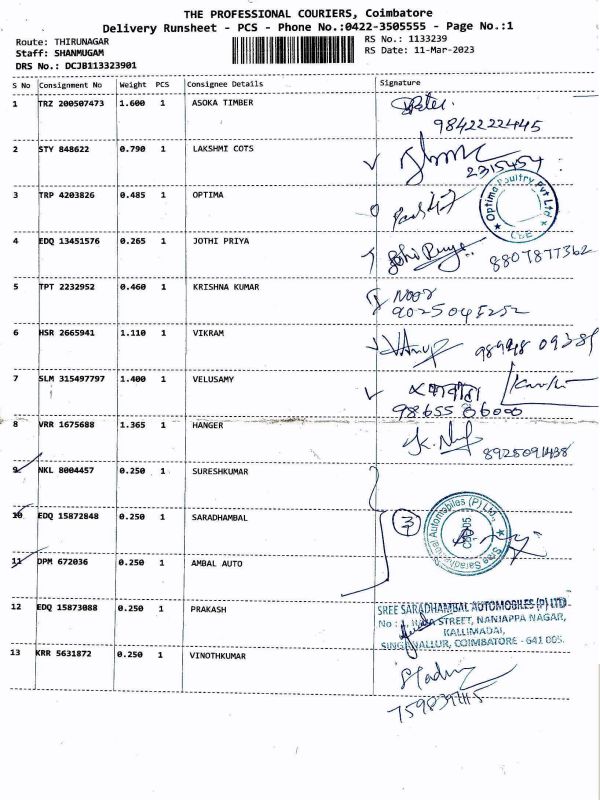 THE PROFESSIONAL COURIERS, Coimbatore
Delivery Runsheet - PCS - Phone No.:0422-3505555 - Page No.:1
Route: THIRUNAGAR
Staff: SHANMUGAM
DRS No.: DCJB113323901
RS No.: 1133239
RS Date: 11-Mar-2023
S No Consignment No Weight PCS Consignee Details Signature
1 TRZ 200507473 1.600 1 ASOKA TIMBER
9842222445
2 STY 848622 0.790 1 LAKSHMI COTS
2315454
3 TRP 4203826 0.485 1 OPTIMA
Optima Poultry Pvt Ltd
CBE
4 EDQ 13451576 0.265 1 JOTHI PRIYA
Jothi Priya
8807877362
5 TPT 2232952 0.460 1 KRISHNA KUMAR
Noor
9025045252
6 HSR 2665941 1.110 1 VIKRAM
989448 09381
7 SLM 315497797 1.400 1 VELUSAMY
98655 06000
8 VRR 1675688 1.365 1 HANGER
8925091438
9 NKL 8004457 0.250 1 SURESHKUMAR
10 EDQ 15872848 0.250 1 SARADHAMBAL
3
Sree Saradhambal Automobiles (P) Ltd.,
11 DPM 672036 0.250 1 AMBAL AUTO
12 EDQ 15873088 0.250 1 PRAKASH
SREE SARADHAMBAL AUTOMOBILES (P) LTD
STREET, NANJAPPA NAGAR,
KALLIMADAI,
SINGANALLUR, COIMBATORE - 641 005.
13 KRR 5631872 0.250 1 VINOTHKUMAR